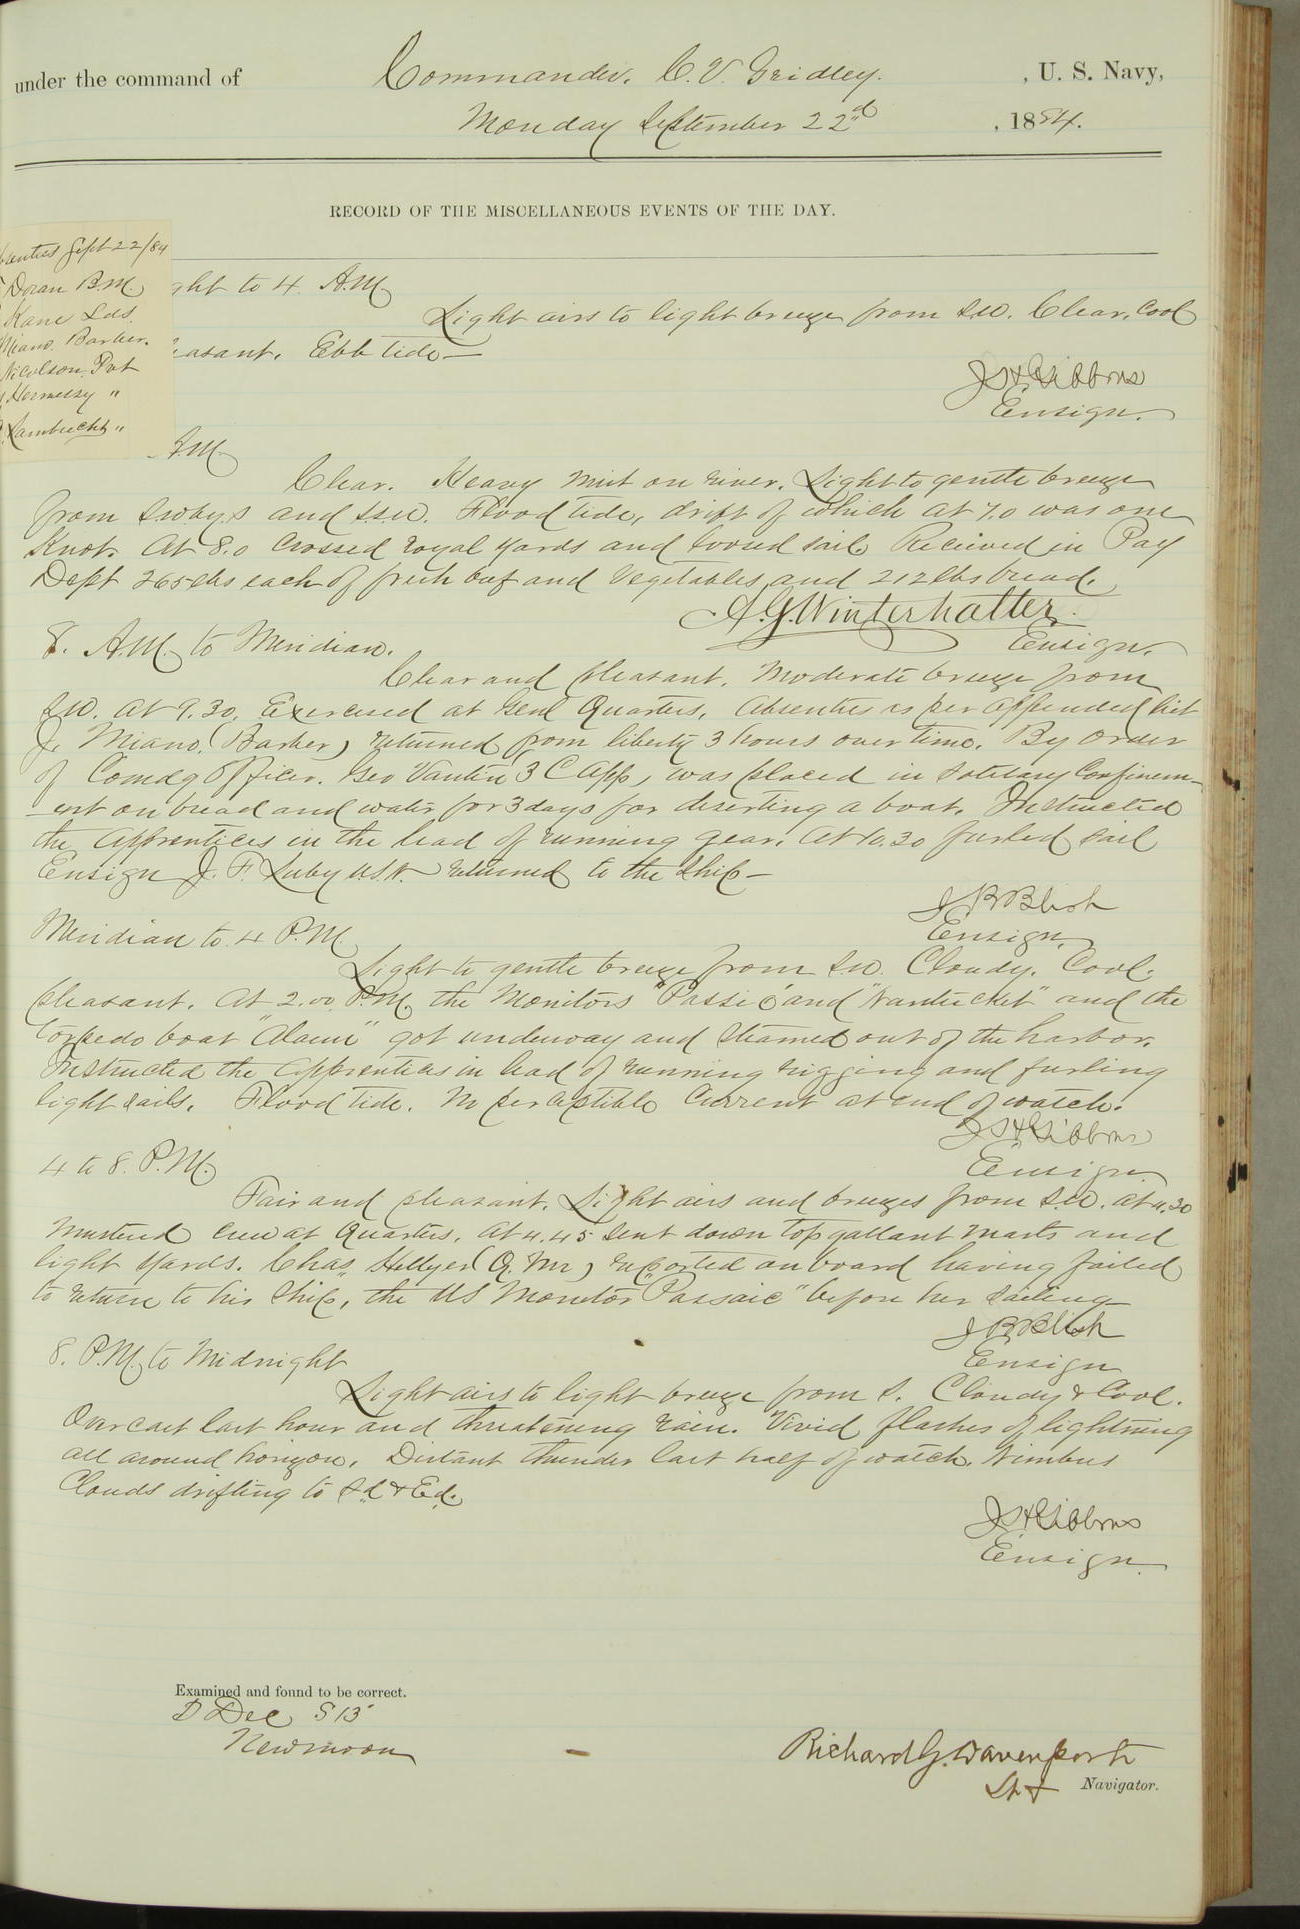 under the command of Commander. C. V. Gridley. , U. S. Navy,
Monday September 22d , 1884.
RECORD OF THE MISCELLANEOUS EVENTS OF THE DAY.
Sept 22/84
Doran B.M.
Kane Lds.
Miano. Barber.
Nicolson. Pvt
Hennessy "
Lambrecht "
ght to 4 A.M.
Light airs to light breeze from S.W. Clear, Cool
easant. Ebb tide—
J. H. Gibbons
Ensign.
A.M.
Clear. Heavy mist on river. Light to gentle breeze
from SWbyS and SSW. Flood tide, drift of which at 7.0 was one
Knot. At 8.0 crossed royal yards and loosed sail. Received in Pay
Dept 265 lbs each of fresh beef and vegetables and 212 lbs bread.
A. G. Winterhalter.
Ensign.
8. A.M. to Meridian.
Clear and pleasant. Moderate breeze from
S.W. At 9.30. Exercised at Genl Quarters. Absentees as per appended list
J. Miano. (Barber) returned from liberty 3 hours over time. By order
of Comdg Officer. Geo 3 C App, was placed in solitary Confinem-
-ent on bread and water for 3 days for deserting a boat. Instructed
the Apprentices in the lead of running gear. At 10.30 furled sail
Ensign J. F. Luby U.S.N. returned to the ship—
J B Blish
Ensign.
Meridian to 4 P.M.
Light to gentle breeze from S.W. Cloudy. Cool.
pleasant. At 2.00 P.M. the Monitors "Passic" and "Nantucket" and the
torpedo boat "Alarm" got underway and steamed out of the harbor.
Instructed the Apprentices in lead of running rigging and furling
light sails. Flood tide. No perceptible Current at end of watch.
J. H. Gibbons
Ensign.
4 to 8. P.M.
Fair and pleasant. Light airs and breezes from S.W. At 4.30
mustered crew at Quarters. At 4.45 sent down top gallant masts and
light yards. Chas. Hellyer (Q. Mr) reported on board having failed
to return to his ship, the US Monitor "Passaic" before her sailing—
J B Blish
Ensign
8. P.M. to Midnight
Light airs to light breeze from S. Cloudy & Cool.
Overcast last hour and threatening rain. Vivid flashes of lightning
all around horizon. Distant thunder last half of watch. Nimbus
Clouds drifting to Sd & Ed.
J. H. Gibbons
Ensign.
Examined and found to be correct.
D Dec S 13°
New moon
Richard G. Davenport
Lt Navigator.